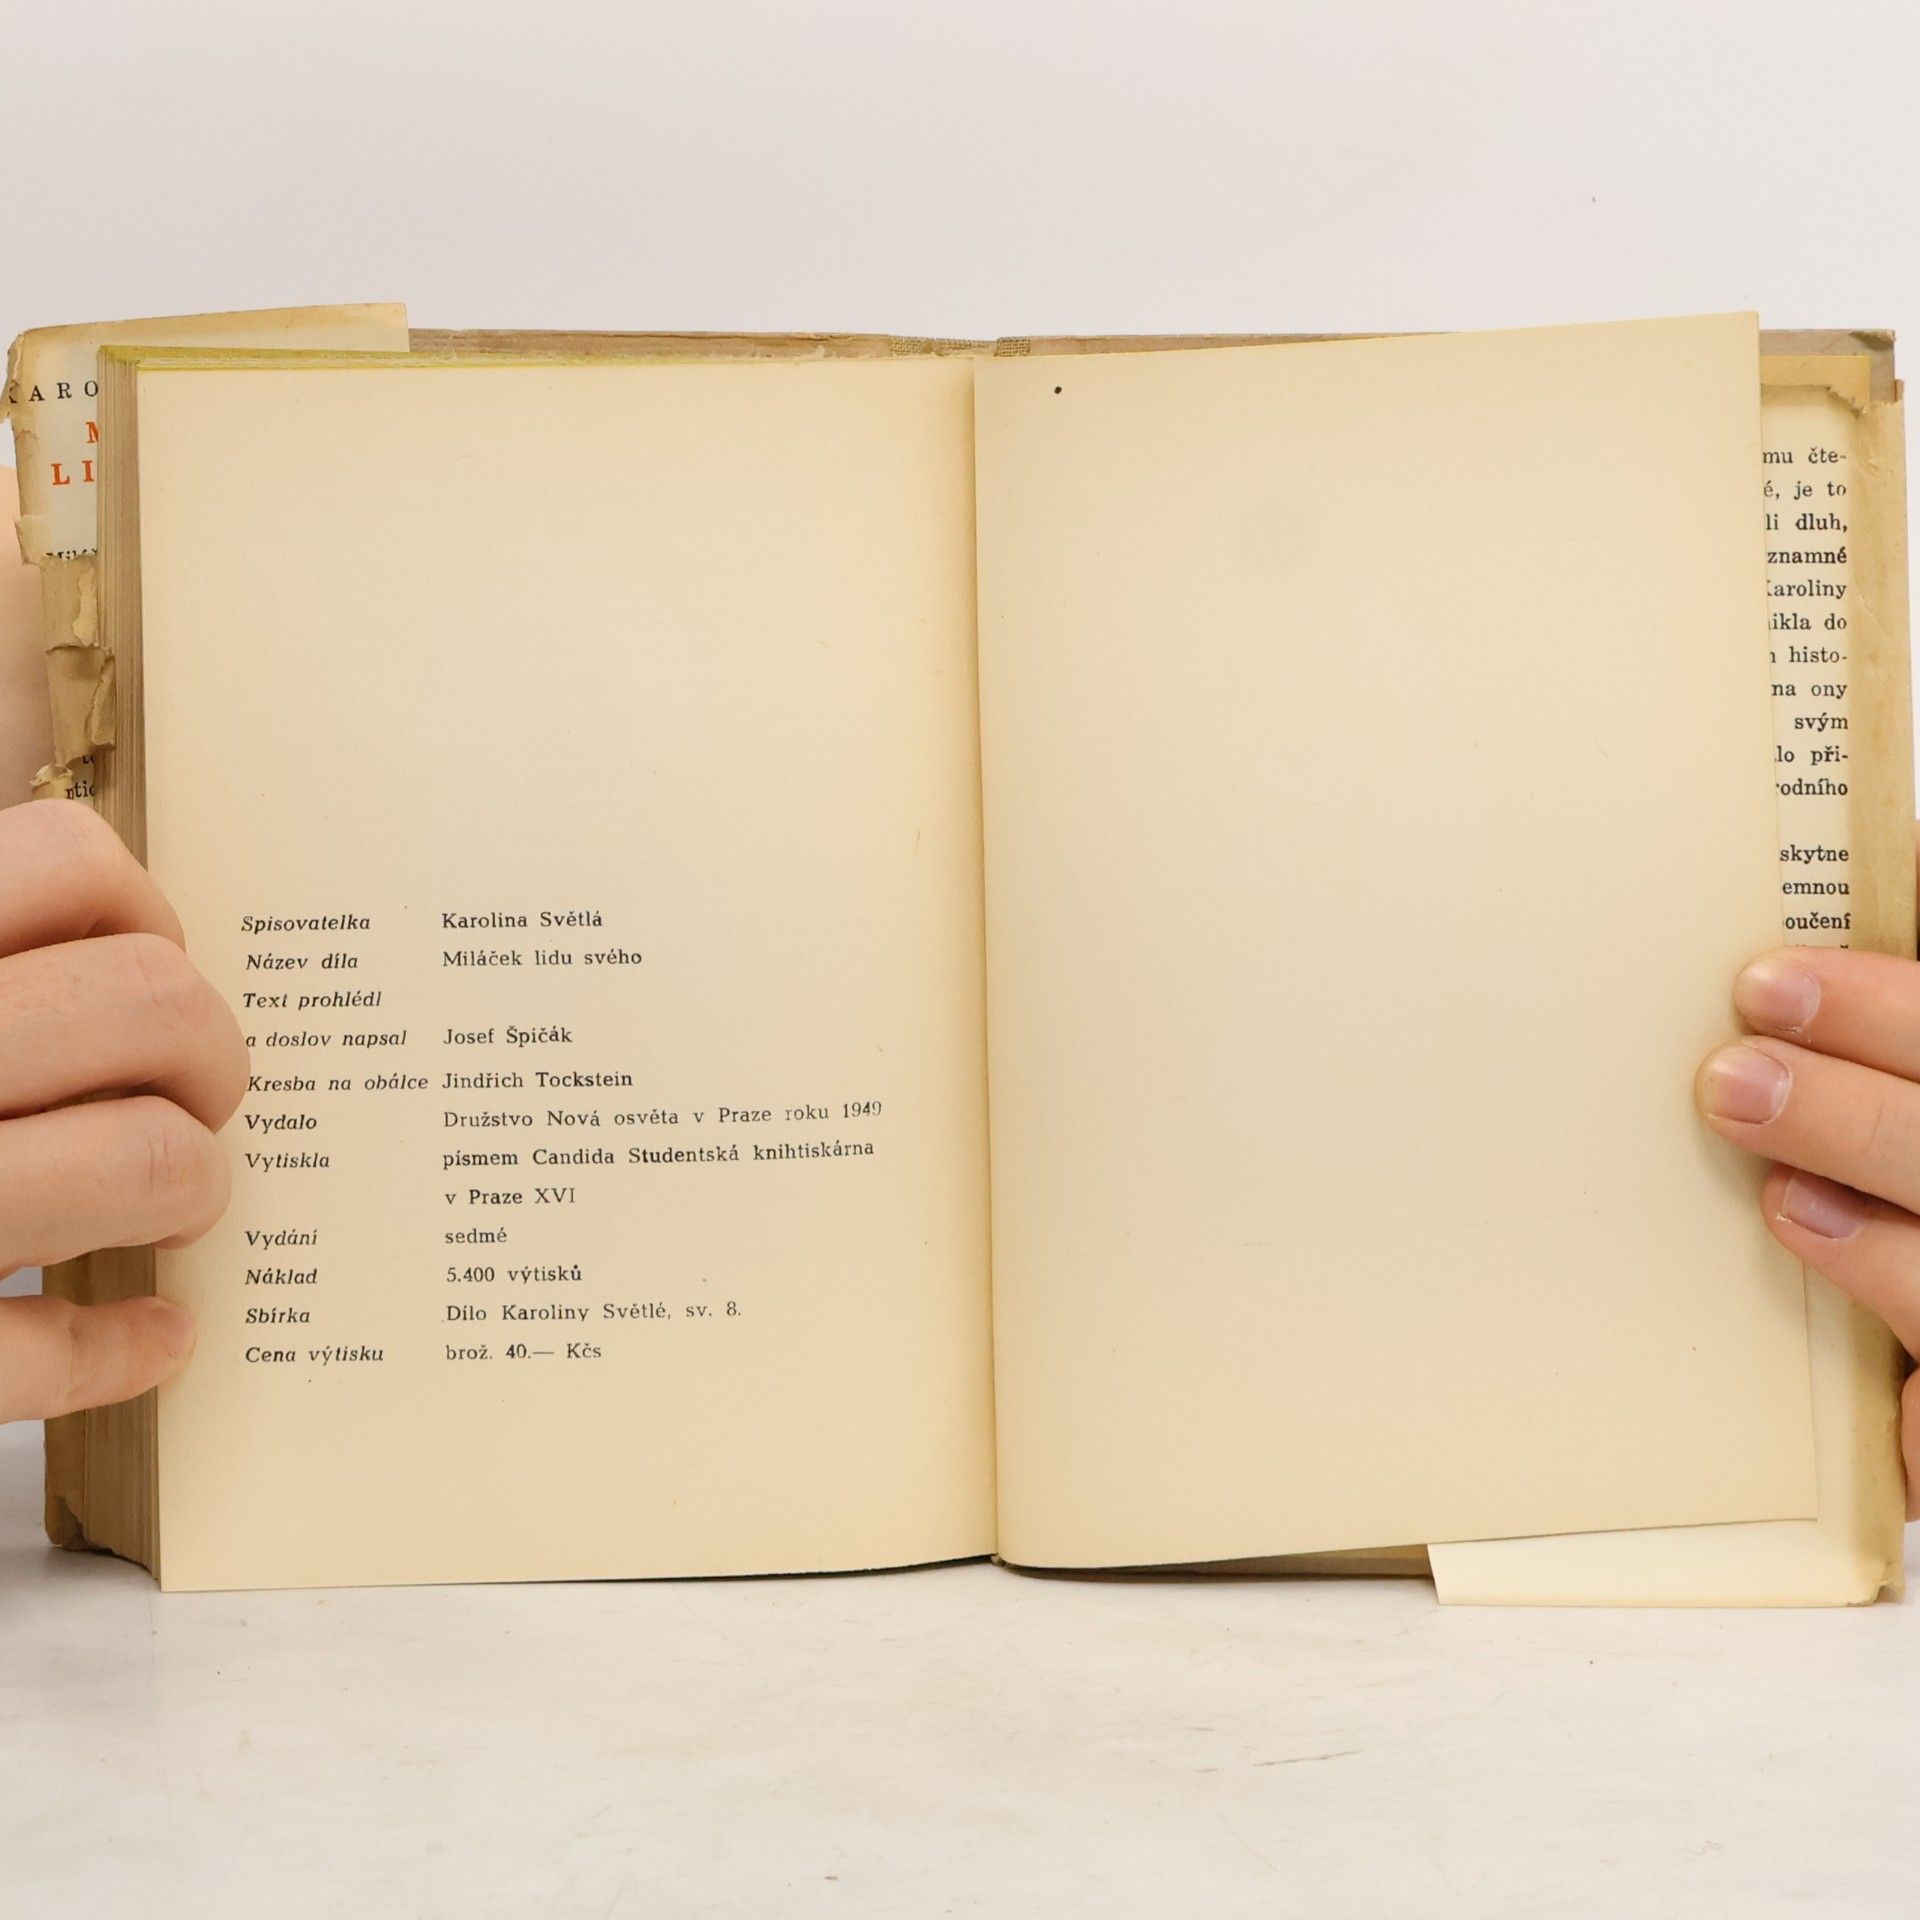 KARO
LI
Spisovatelka Karolina Světlá
Název díla Miláček lidu svého
Text prohlédl
a doslov napsal Josef Špičák
Kresba na obálce Jindřich Tockstein
Vydalo Družstvo Nová osvěta v Praze roku 1949
Vytiskla písmem Candida Studentská knihtiskárna
v Praze XVI
Vydání sedmé
Náklad 5.400 výtisků
Sbírka Dílo Karoliny Světlé, sv. 8.
Cena výtisku brož. 40.— Kčs
mu čte-
é, je to
li dluh,
znamné
Karoliny
ikla do
histo-
na ony
svým
lo při-
rodního
skytne
emnou
oučení